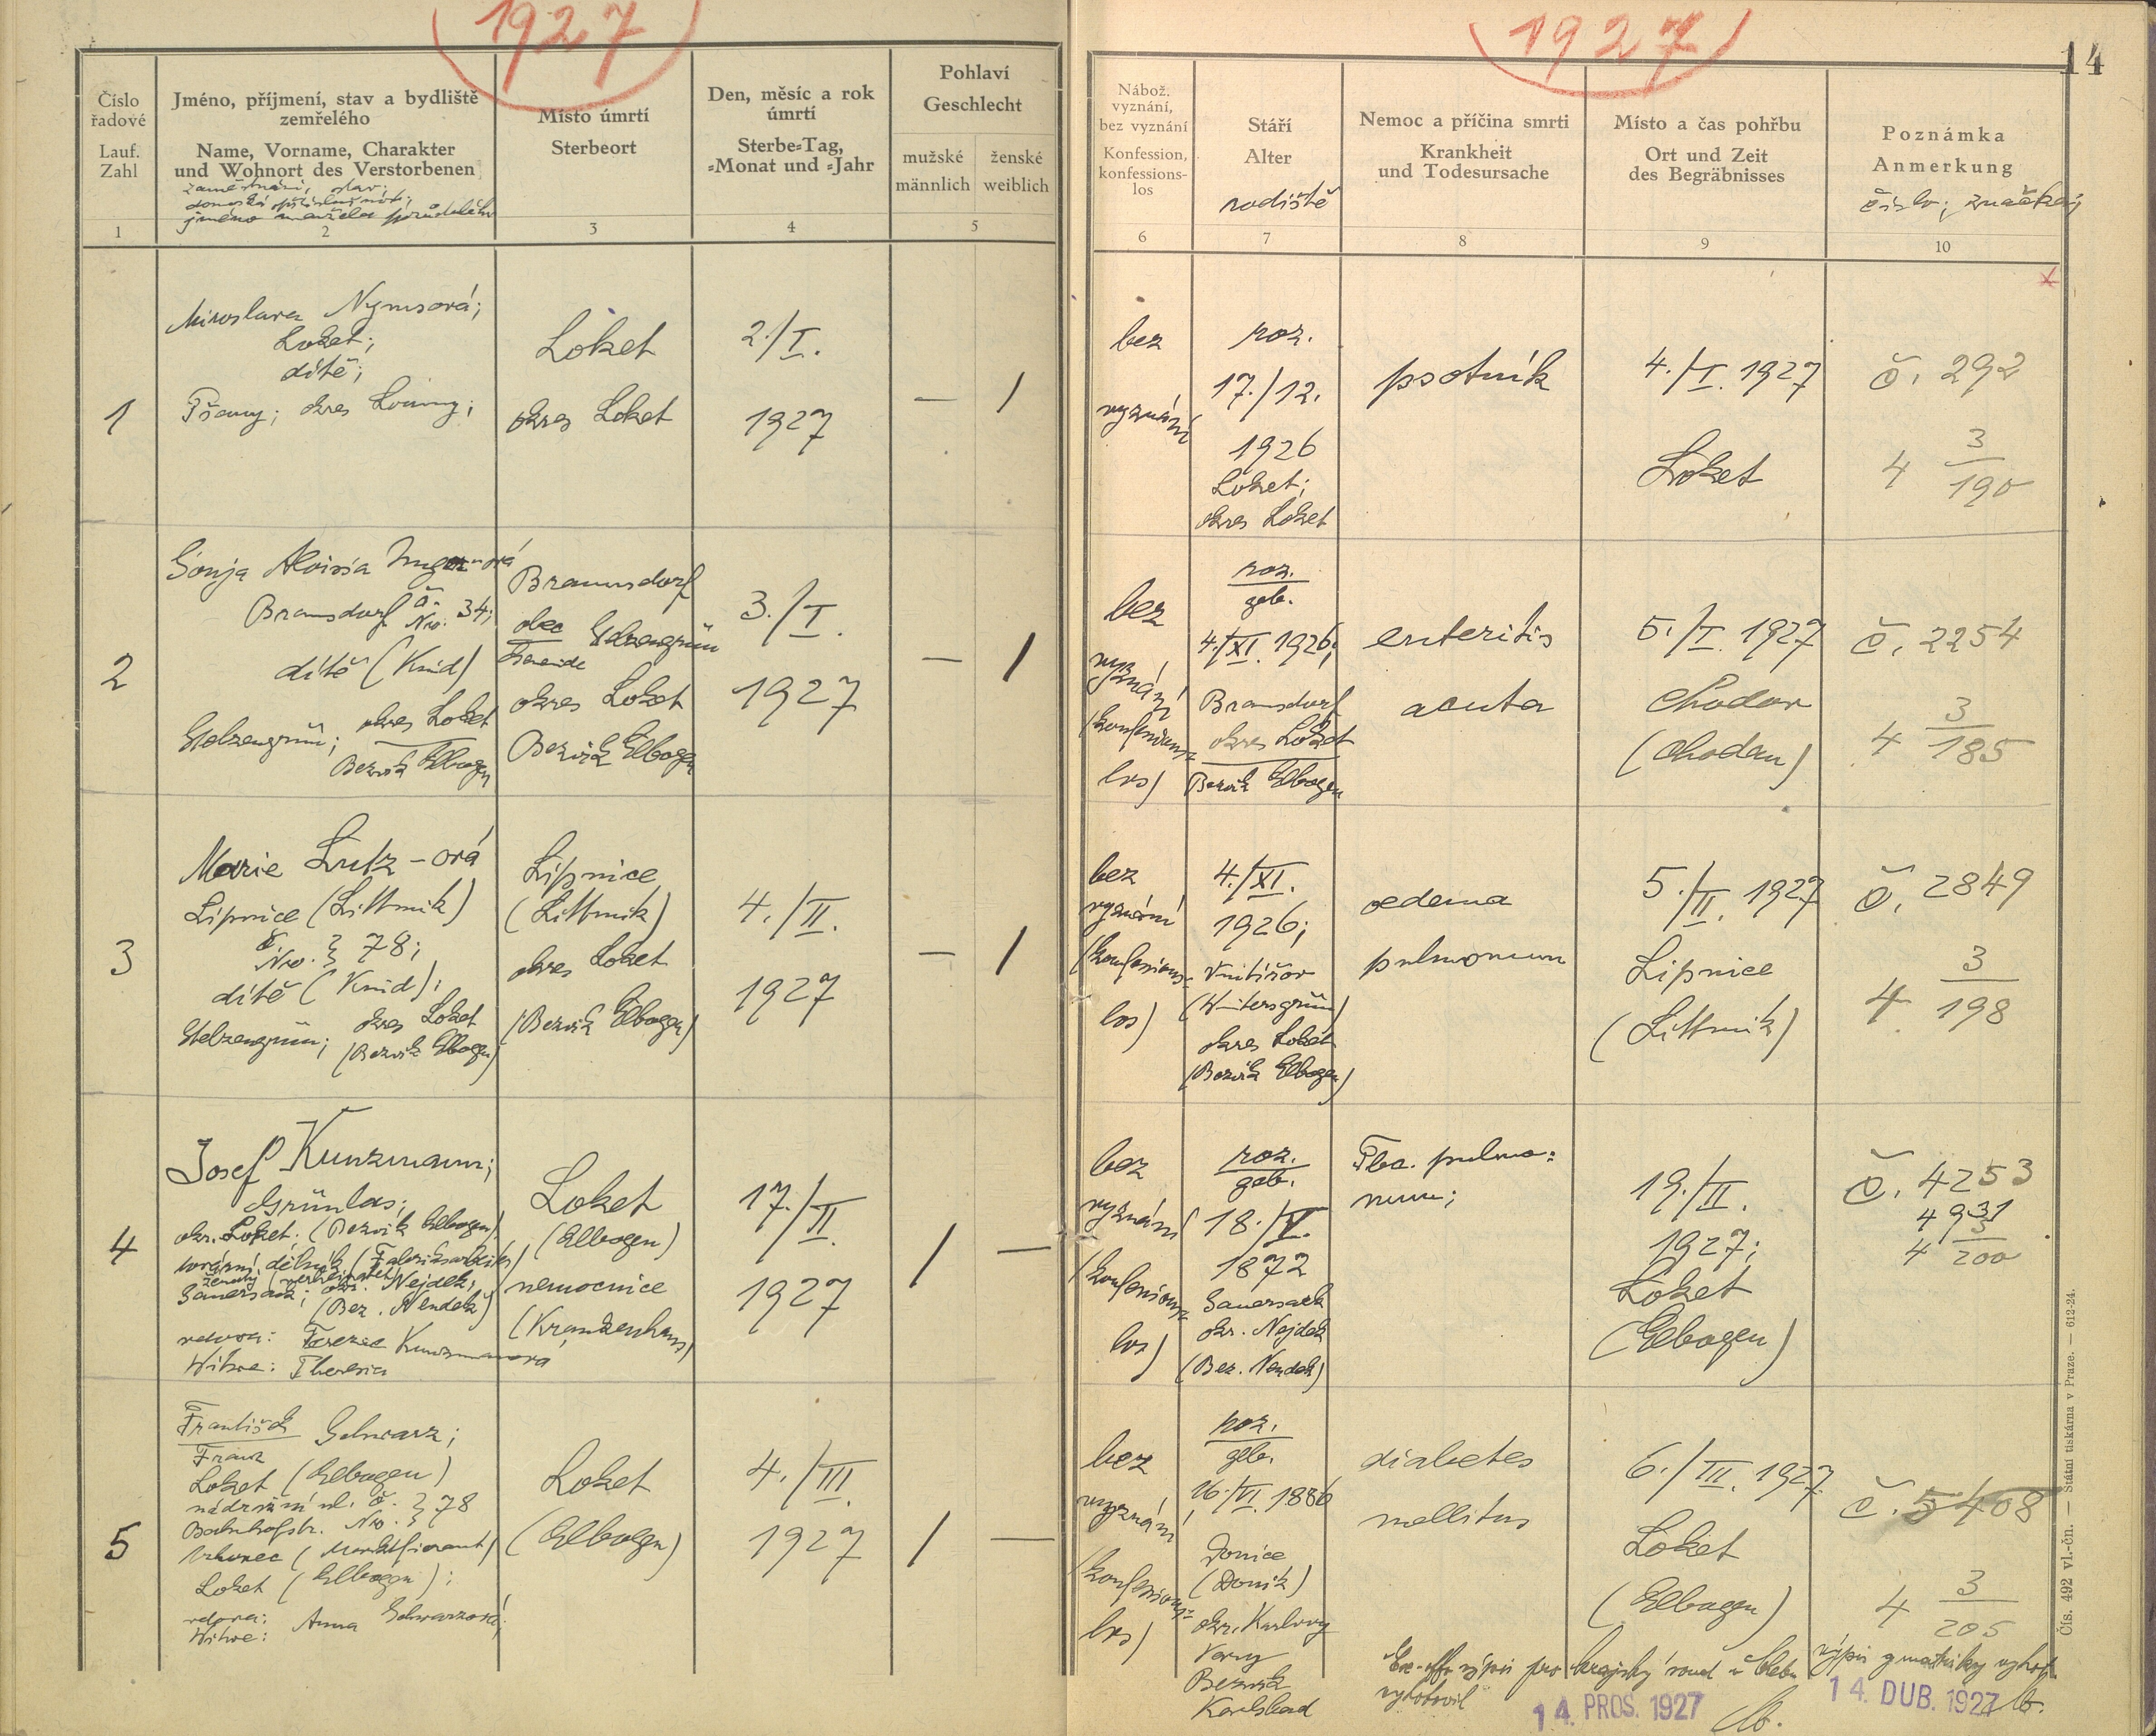 1927
1927
14
Číslo
řadové
Lauf.
Zahl
1
Jméno, příjmení, stav a bydliště
zemřelého
Name, Vorname, Charakter
und Wohnort des Verstorbenen
zaměstnání, stav;
jméno manžela
2
Místo úmrtí
Sterbeort
3
Den, měsíc a rok
úmrtí
Sterbe-Tag,
-Monat und -Jahr
4
Pohlaví
Geschlecht
mužské
männlich
ženské
weiblich
5
Nábož.
vyznání,
bez vyznání
Konfession,
konfessions-
los
6
Stáří
Alter
rodiště
7
Nemoc a příčina smrti
Krankheit
und Todesursache
8
Místo a čas pohřbu
Ort und Zeit
des Begräbnisses
9
Poznámka
Anmerkung
číslo; značka;
10
1
Miroslava Nymsová;
Loket;
dítě;
Pšany; okres Louny;
Loket
okres Loket
2./I.
1927
— /
bez
vyznání
roz.
17./12.
1926
Loket;
okres Loket
psotník
4./I. 1927
Loket
č. 292
4 3/190
2
Sonja Aloisia
Braunsdorf č. No. 34;
dítě (Kind)
Stelzengrün; okres Loket
Bezirk Elbogen
Braunsdorf
obec Stelzengrün
Gemeinde
okres Loket
Bezirk Elbogen
3./I.
1927
— /
bez
vyznání
(konfessions-
los)
roz.
geb.
4./XI. 1926;
Braunsdorf
okres Loket
Bezirk Elbogen
enteritis
acuta
5./I. 1927
Chodov
(Chodau)
č. 2254
4 3/185
3
Marie Lutz-ová
Lipnice (Littmik)
č. No. } 78;
dítě (Kind);
Stelzengrün; okres Loket
(Bezirk Elbogen)
Lipnice
(Littmik)
okres Loket
(Bezirk Elbogen)
4./II.
1927
— /
bez
vyznání
(konfessions-
los)
4./XI.
1926;
Vintířov
(Wintersgrün)
okres Loket
(Bezirk Elbogen)
oedema
pulmonum
5./II. 1927
Lipnice
(Littmik)
č. 2849
4 3/198
4
Josef Kunzmann;
Grünlas;
okr. Loket; (Bezirk Elbogen)
tovární dělník (Fabriksarbeiter)
ženatý (verheiratet)
Sauersack; okr. Nejdek;
(Bez. Neudek)
vdova: Terezie Kunzmannová
Witwe: Theresia
Loket
(Elbogen)
nemocnice
(Krankenhaus)
17./II.
1927
/ —
bez
vyznání
(konfessions-
los)
roz.
geb.
18./V.
1872
Sauersack
okr. Nejdek
(Bez. Neudek)
Tbc. pulmo-
num;
19./II.
1927;
Loket
(Elbogen)
č. 4253
4931
4 3/200
5
František Schwarz;
Franz
Loket (Elbogen)
nádražní ul. č. } 78
Bahnhofstr. No. }
trhovec (Marktfierant)
Loket (Elbogen);
vdova: Anna Schwarzová;
Witwe:
Loket
(Elbogen)
4./III.
1927
/ —
bez
vyznání
(konfessions-
los)
roz.
geb.
16./VI. 1886
Donice
(Donik)
okr. Karlovy
Vary
Bezirk
Karlsbad
diabetes
mellitus
6./III. 1927
Loket
(Elbogen)
č. 5408
4 3/205
Ex-offo výpis pro krajský soud v Chebu
vyhotovil
14. PROS. 1927
výpis z matriky vyhot.
14. DUB. 1927
Čís. 492 vl.-čn. — Státní tiskárna v Praze. — 612-24.